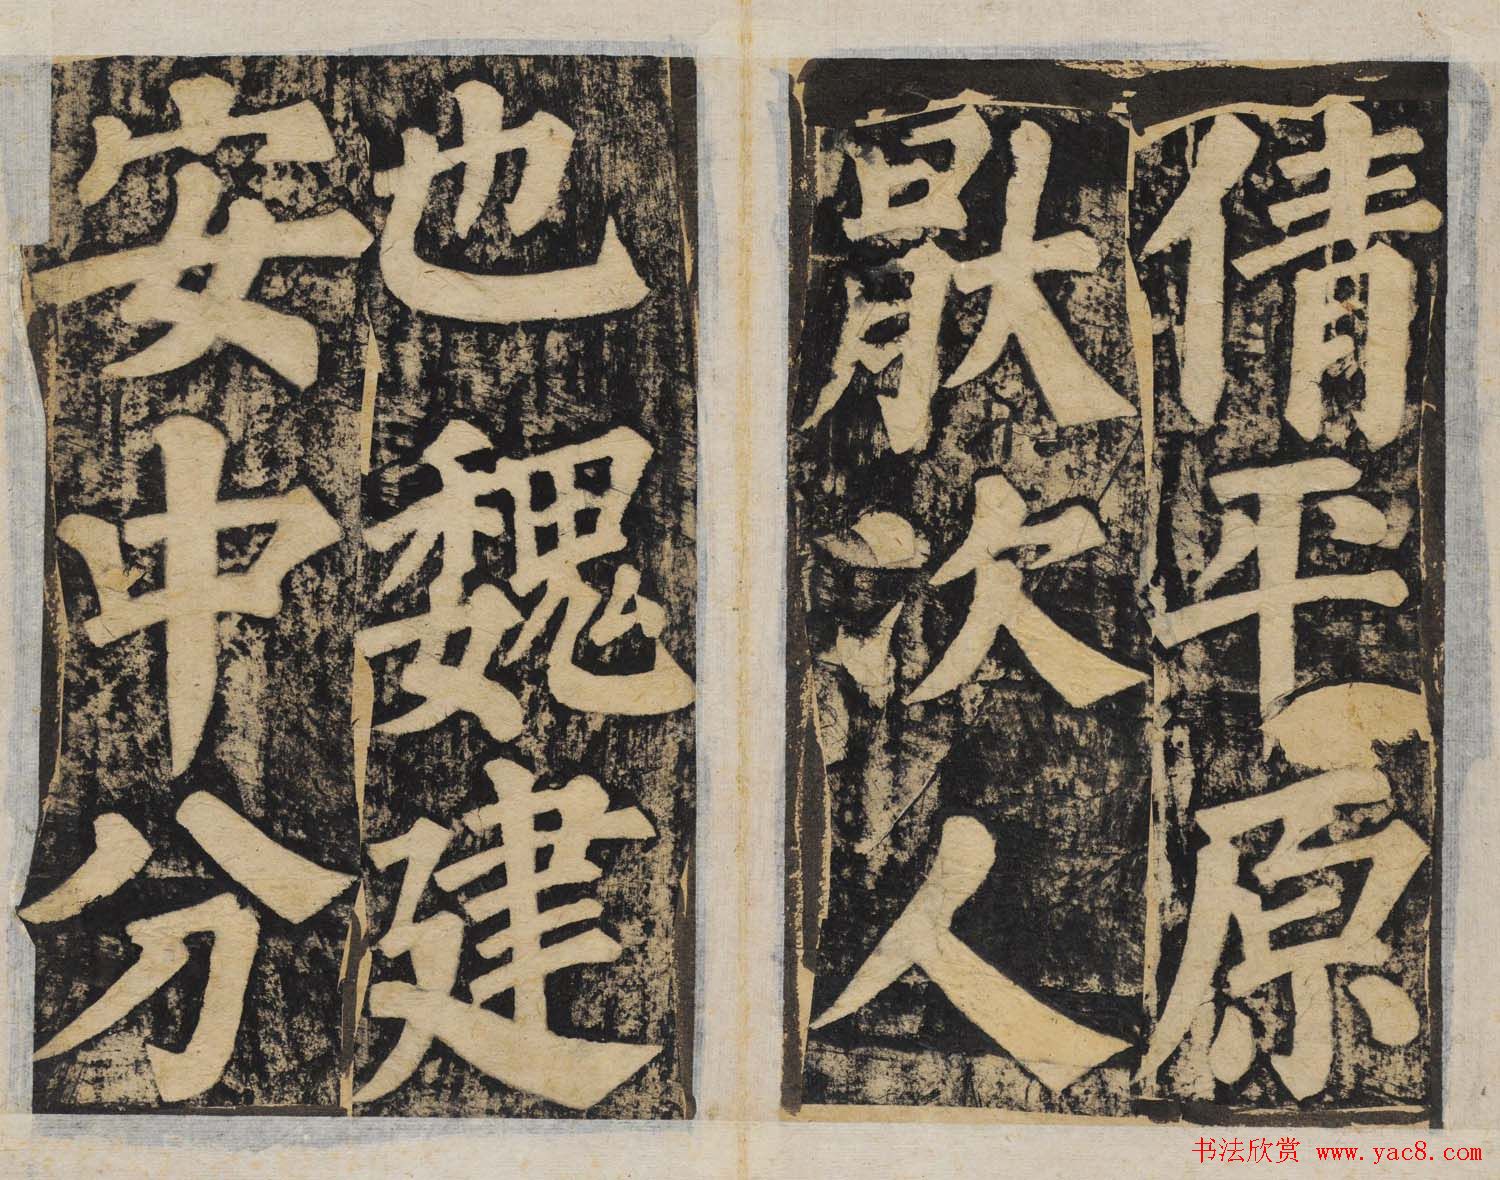 倩平原
猒次人
也魏建
安中分
书法欣赏 www.yac8.com